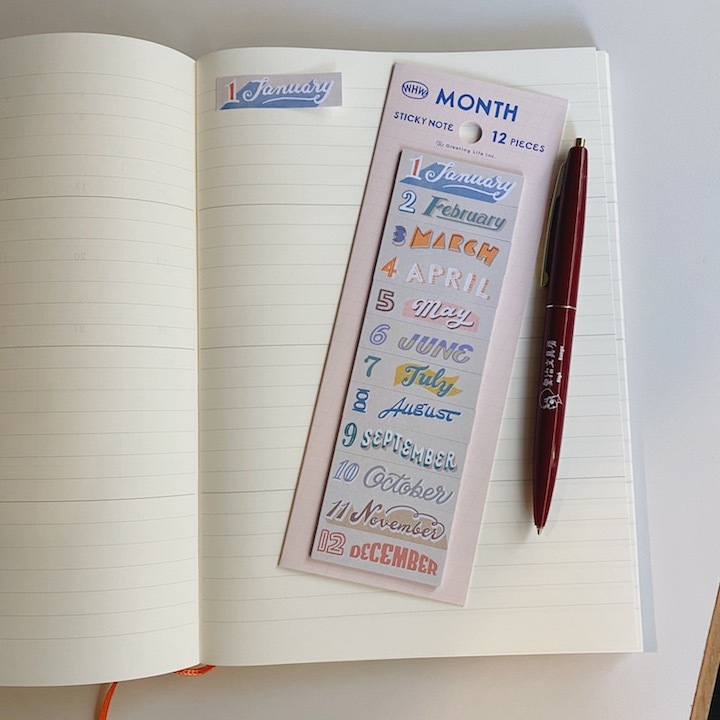 1 January
NHW
MONTH
STICKY NOTE 12 PIECES
The Greeting Life Inc.
1 January
2 February
3 MARCH
4 APRIL
5 May
6 JUNE
7 July
8 AUGUST
9 SEPTEMBER
10 October
11 November
12 DECEMBER